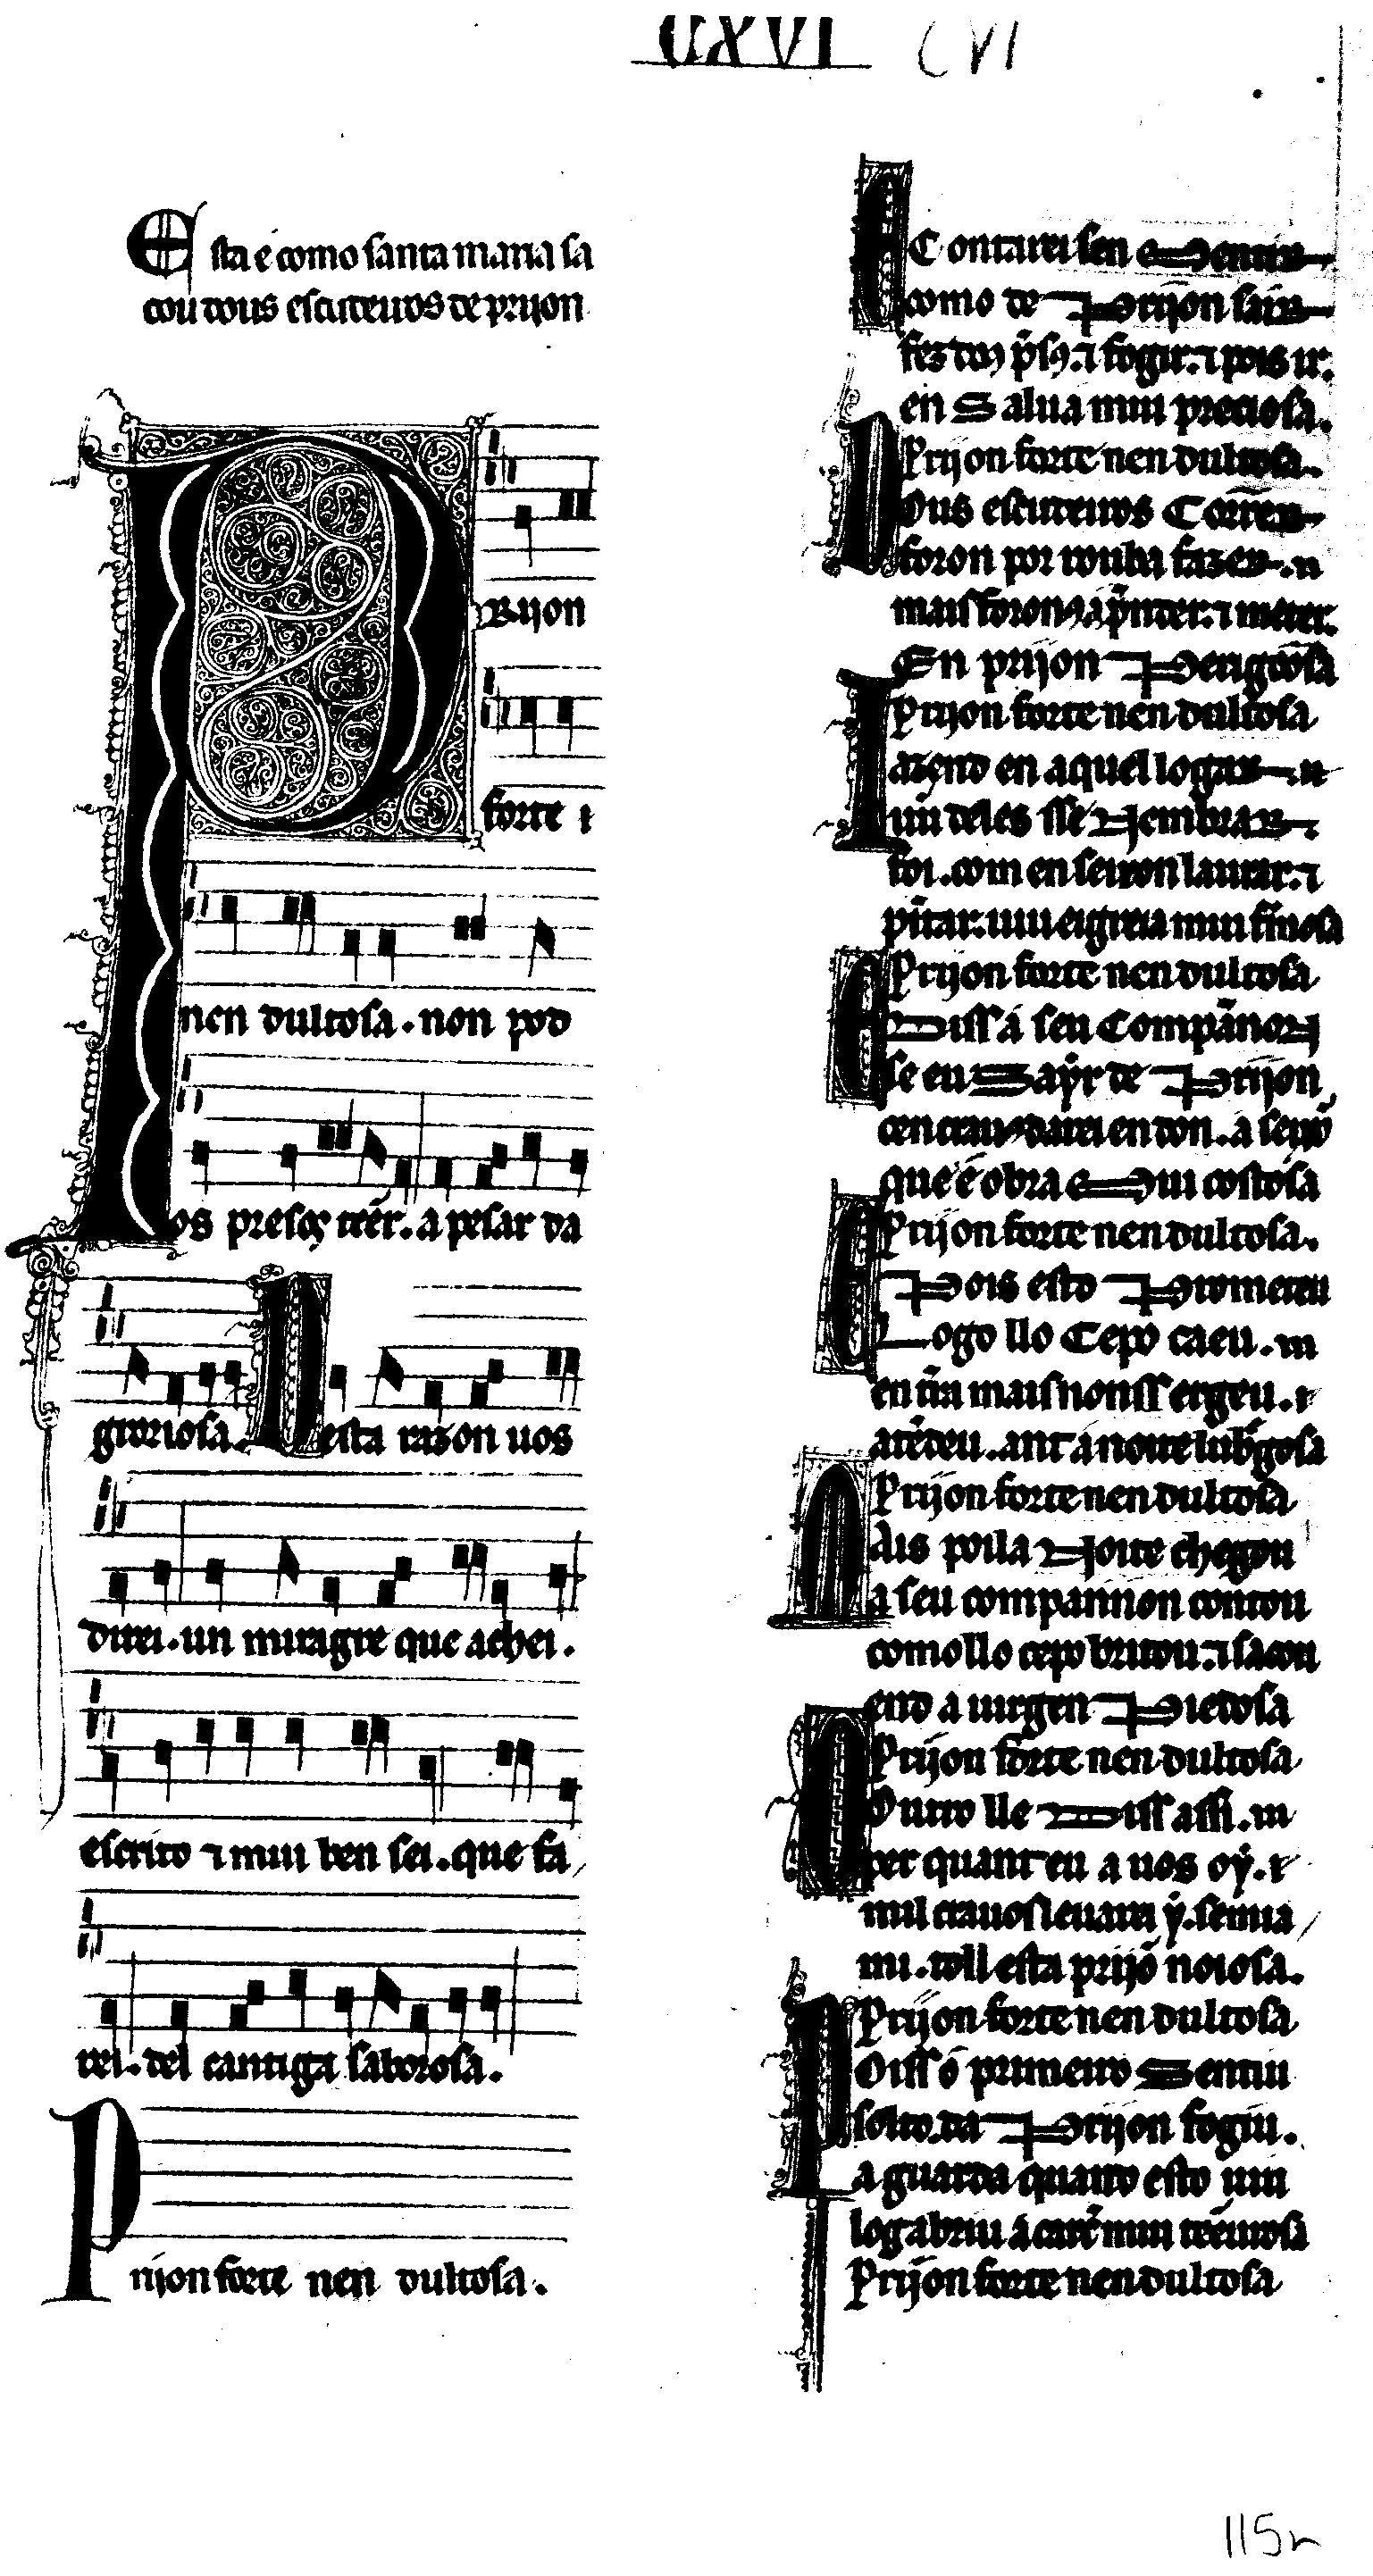 CXVI CVI
Esta é como santa maria sa
cou dous escudeiros de prijon
PRijon
forte τ
nen dultosa. non pod
os presos tẽer. a pesar da
groriosa. Desta razon uos
direi. un miragre que achei.
escrito τ mui ben sei. que fa
rei. del cantiga saborosa.
Prijon forte nen dultosa.
E Contarei sen Mentir
como de Prijon sair
fez dous p̃sos. τ fogir. τ pois ir.
en Salua mui preciosa.
Prijon forte nen dultosa.
Dous escudeiros Correr
foron por rouba fazer. τ
mais foronos a p̃nder. τ meter.
En prijon Perigoosa
Prijon forte nen dultosa
Iazend en aquel logar. τ
uũ deles sse Nembrar.
foi. com en seixon laurar. τ
pĩtar. uũ eigreia mui fremosa
Prijon forte nen dultosa
E Diss a seu Compãnon
se eu Sayr de Prijon
cen crauos darei en don. a seixõ
que é obra Mui costosa
Prijon forte nen dultosa.
E Pois esto Prometeu
Logo llo Cepo caeu. m
en t̃ra mais non ss ergeu. τ
atẽdeu. ant a noite lub̃gosa
Prijon forte nen dultosa
Mais poila Noite chegou
a seu compannon contou
como llo cepo britou. τ sacou
end a uirgen Piedosa
Prijon forte nen dultosa
Outro lle Diss assi. m
per quant eu a uos oý. τ
mil crauos leuarei ý. se mia
mi. toll esta prijõ noiosa.
Prijon forte nen dultosa
Poiss o primeiro Sentiu
solto. da Prijon fogiu.
a guarda quando esto uiu
log abriu a carc̃r mui tẽeurosa
Prijon forte nen dultosa
115r